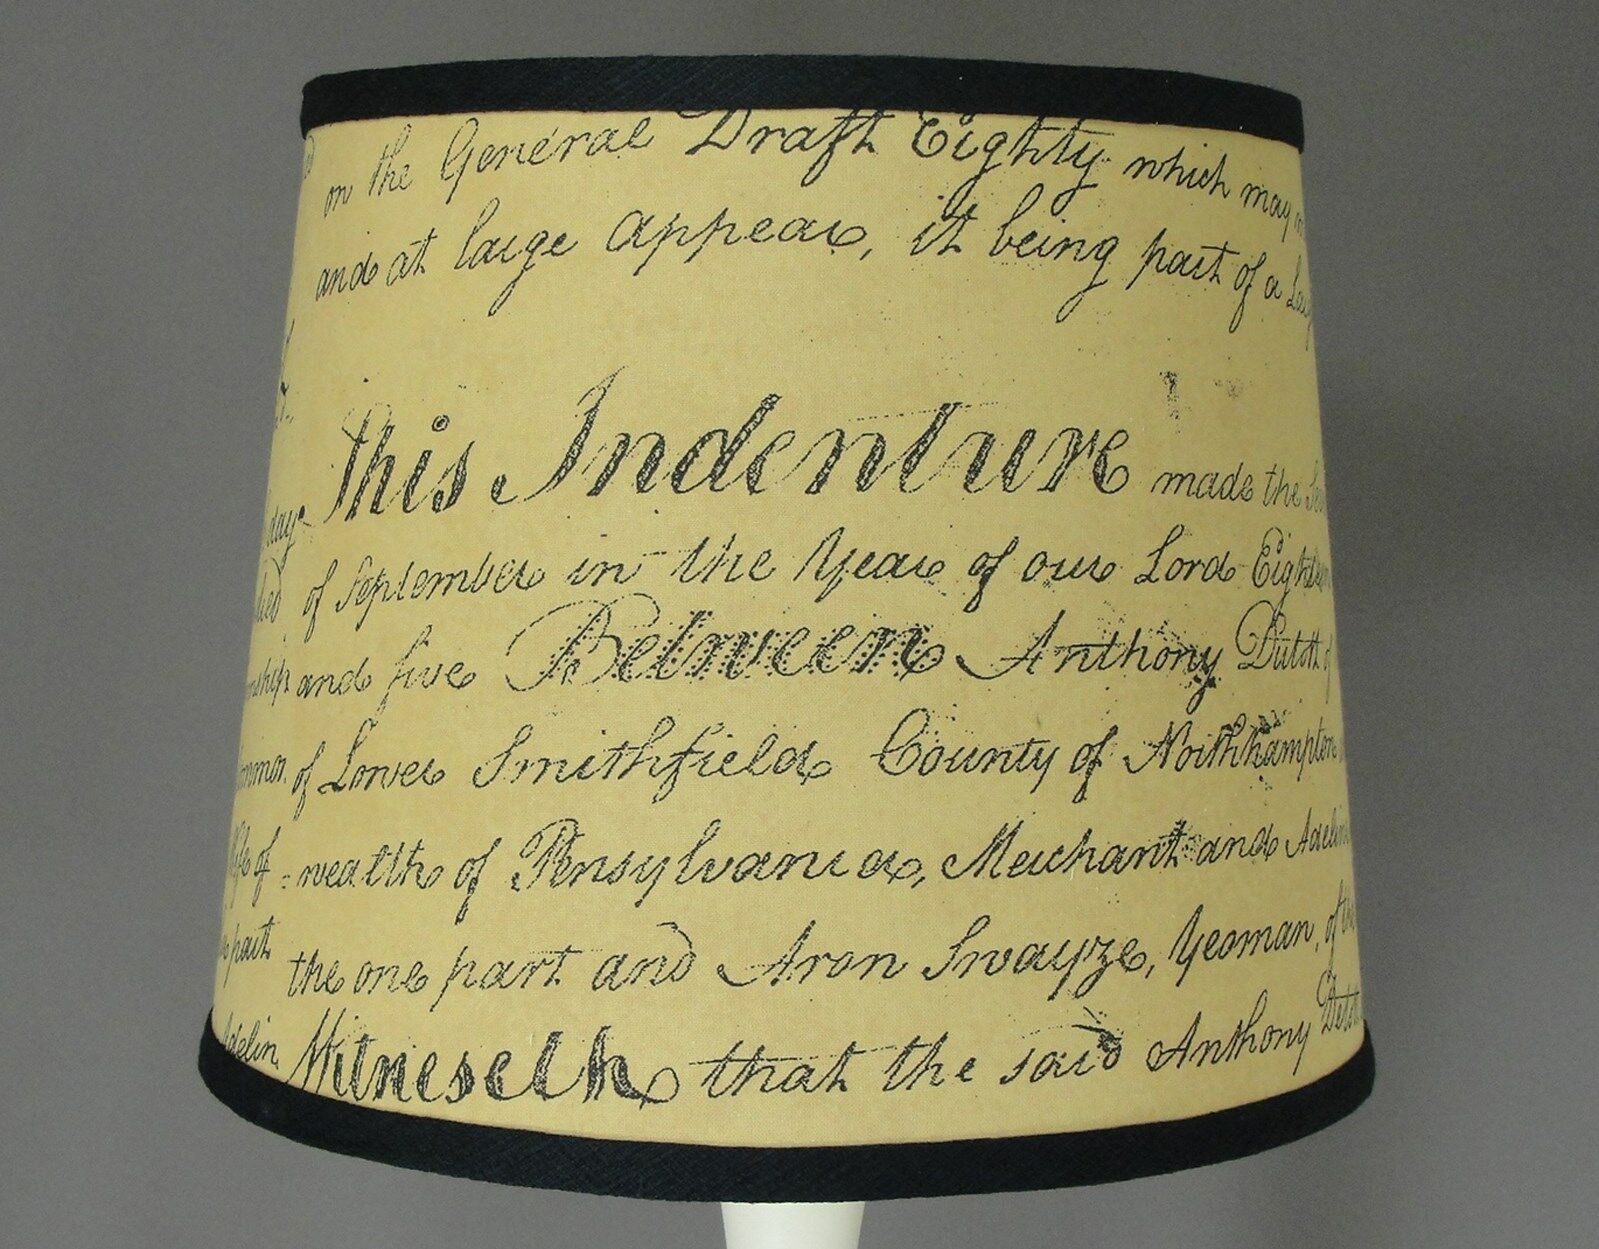 on the General Draft Eighty which may
and at large appear, it being part of a
This Indenture made the
day of September in the Year of our Lord Eighteen
and five Between Anthony Dutot of
of Lower Smithfield County of Northampton
Wife of =wealth of Pensylvania, Merchant and Adelin
part the one part and Aron Swayze, Yeoman, of
Adelin Witneseth that the said Anthony